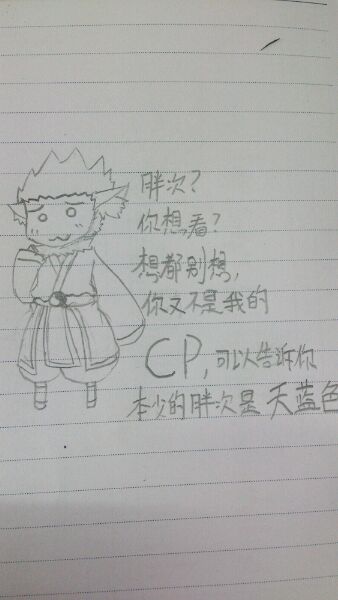 胖次?
你想看?
想都别想,
你又不是我的
CP,可以告诉你
本少的胖次是天蓝色